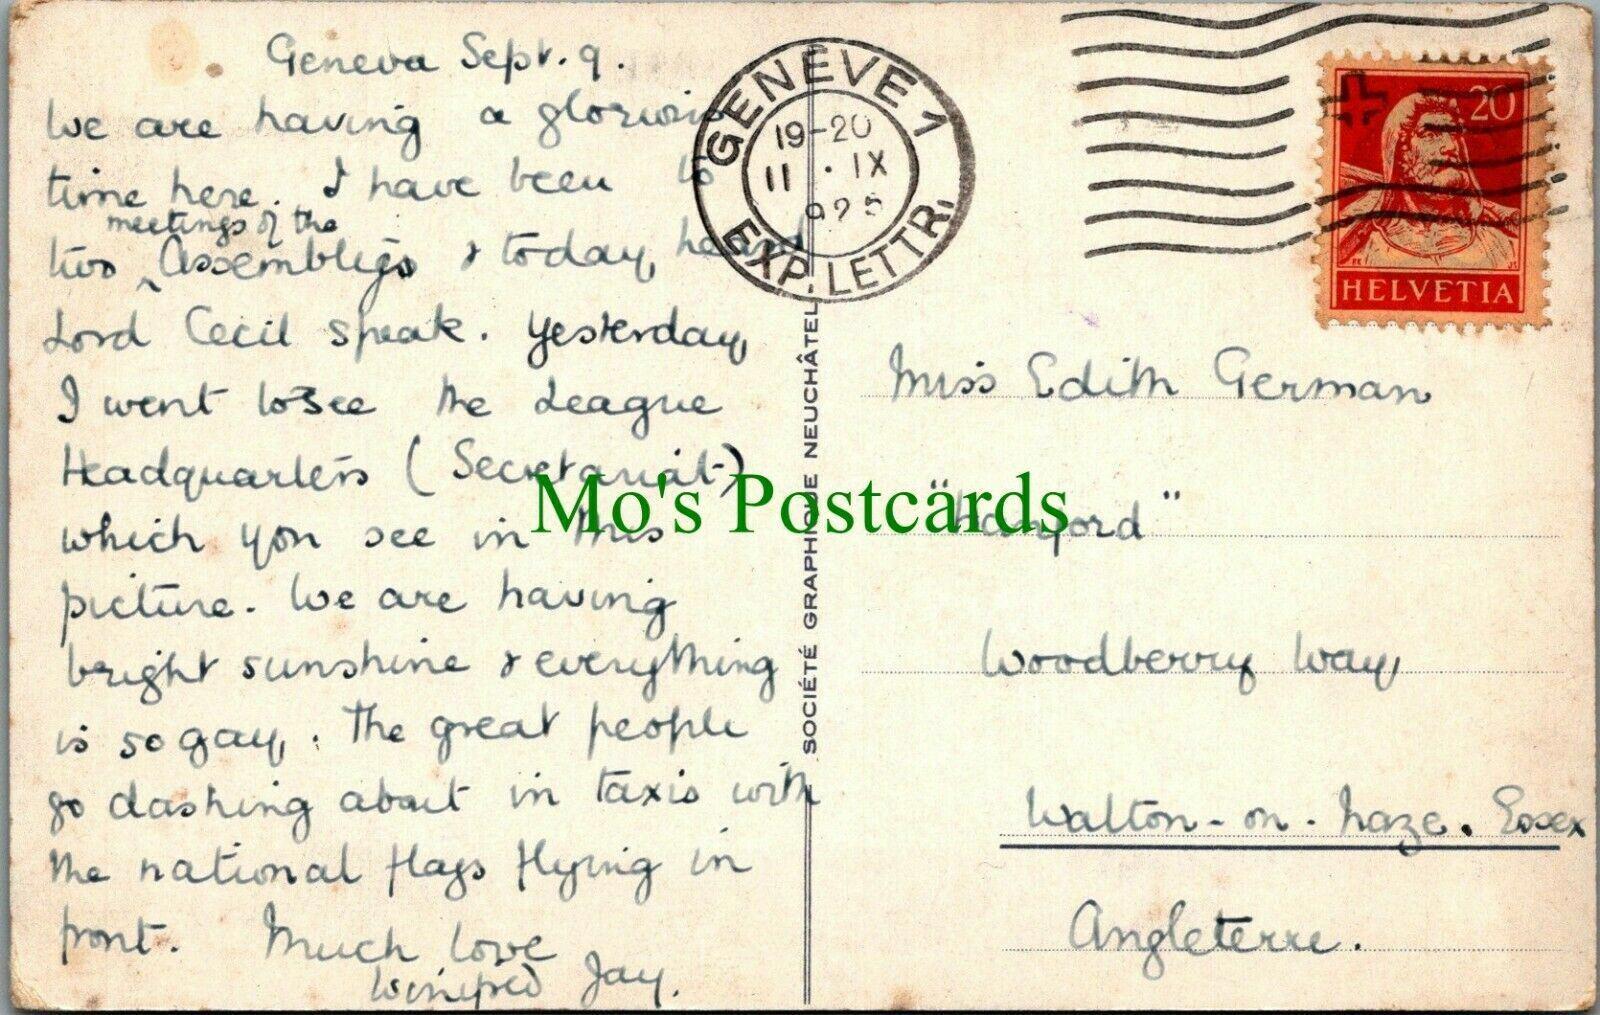 Geneva Sept. 9.
We are having a glorious
time here. I have been to
meetings of the
two Assemblies & today, heard
Lord Cecil speak. Yesterday,
I went to see the League
Headquarters (Secretariat)
which you see in this
picture. We are having
bright sunshine & everything
is so gay. The great people
go dashing about in taxis with
the national flags flying in
front. Much love
Winifred Jay.
GENÈVE 1
19-20
11 . IX
EXP. LETTR.
20
HELVETIA
SOCIÉTÉ GRAPHIQUE NEUCHÂTEL
Mo's Postcards
Miss Edith German
"Hanford"
Woodberry Way,
Walton-on-Naze. Essex
Angleterre.